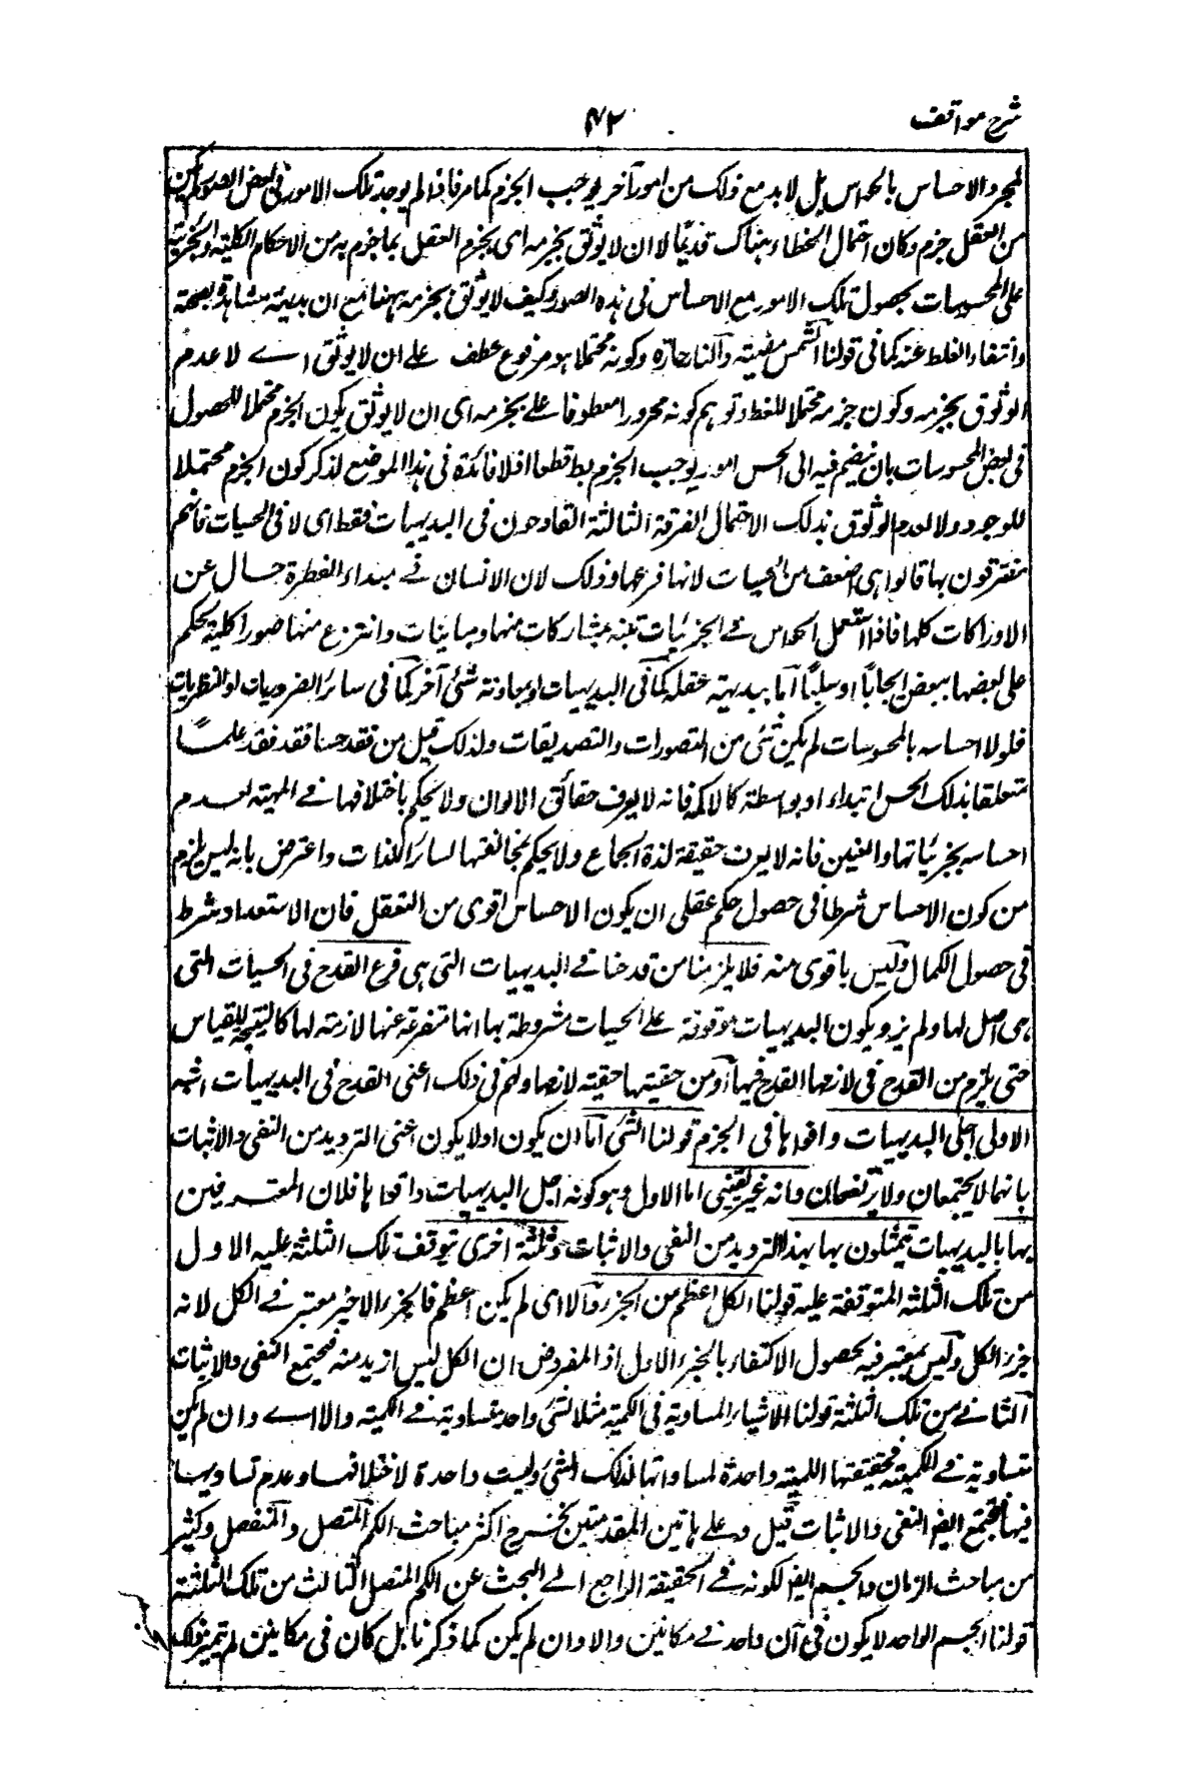 شرح مواقف
۴۲
لمجرد الاحساس بالحواس بل لابد مع ذلك من امور آخر يوجب الجزم كما مر فاذا لم يوجد تلك الامور فى بعض الصور لم يكن
من العقل جزم وكان احتمال الخطاء هناك قائما لا ان لا يوثق بجزمه اى بجزم العقل بما جزم به من الاحكام الكلية او الجزئية
على المحسوسات بحصول تلك الامور مع الاحساس فى هذه الصور وكيف لا يوثق بجزمه ههنا مع ان بديهته شاهدة بصحته
وانتفاء الغلط عنه كما فى قولنا الشمس مضيئة والنار حارة وكونه محتملا هو مرفوع عطف على ان لا يوثق اے لا عدم
الوثوق بجزمه وكون جزمه محتملا للغلط وتوهم كونه مجرورا معطوفا على بجزمه اى ان لا يوثق بكون الجزم محتملا للحصول
فى بعض المحسوسات بان ينضم فيه الى الحس امور يوجب الجزم بط قطعا اذ لا فائدة فى هذا الموضع لذكر كون الجزم محتملا
للوجود ولا لعدم الوثوق بذلك الاحتمال الفرقة الثالثة القادحون فى البديهيات فقط اى لا فى الحسيات فانهم
معترفون بها قالوا هى اضعف من الحسيات لانها فرعها وذلك لان الانسان فے مبداء الفطرة خال عن
الادراكات كلها فاذا استعمل الحواس فے الجزئيات تنبه بمشاركات منها ومباينات وانتزع منها صورا كلية يحكم
على بعضها ببعض ايجابًا او سلبًا اما ببديهة عقله كما فى البديهيات او بمعاونة شئ آخر كما فى سائر الضروريات او النظريات
فلولا احساسه بالمحسوسات لم يكن له شئ من التصورات والتصديقات ولذلك قيل من فقد حسا فقد فقد علمًا
متعلقا بذلك الحس ابتداء او بواسطة كالاكمه فانه لا يعرف حقائق الالوان ولا يحكم باختلافها فے المهية لعدم
احساسه بجزئياتها والعنين فانه لا يعرف حقيقة لذة الجماع ولا يحكم بمخالفتها لسائر اللذات واعترض بانه ليس يلزم
من كون الاحساس شرطا فى حصول حكم عقلى ان يكون الاحساس اقوى من التعقل فان الاستعداد شرط
فى حصول الكمال وليس باقوى منه فلا يلزمنا من قدحنا فے البديهيات التى هى فرع القدح فى الحسيات التى
هى اصل لها ولم يرد بكون البديهيات موقوفة على الحسيات مشروطة بها انها متفرعة عنها لازمة لها كالنتيجة للقياس
حتى يلزم من القدح فى لازمها القدح فيها او من حقيتها حقيته لانها ولهم فى ذلك اعنى القدح فى البديهيات شبه
الاولى اجلى البديهيات واقواها فى الجزم قولنا الشئ اما ان يكون او لا يكون اعنى الترديد من النفى والاثبات
بانهما لا يجتمعان ولا يرتفعان وانه غير يقينى اما الاول وهو كونه اجلى البديهيات واقواها فلان المعترفين
بها بالبديهيات يتمثلون بها بهذا الترديد من النفى والاثبات وثلثة اخرى تتوقف تلك الثلثة عليه الاول
من تلك الثلثة المتوقفة عليه قولنا الكل اعظم من الجزء والا اى لم يكن اعظم فالجزء الاخير معتبر فے الكل لانه
جزء الكل وليس بمعتبر فيه بحصول الاكتفاء بالجزء الاول اذ المفروض ان الكل ليس ازيد منه فيجتمع النفى والاثبات
الثانے من تلك الثلثة قولنا الاشياء المساوية فى الكمية مثلا لشئ واحد متساوية فے الكمية والا اے وان لم يكن
متساوية فے الكمية فحقيقتها الكمية واحدة لمساواتها لذلك الشئ وليست واحدة لاختلافها وعدم تساويها
فيها فيجتمع ايض النفى والاثبات قيل وعلے هاتين المقدمتين تخرج اكثر مباحث الكم المتصل والمنفصل وكثير
من مباحث الزمان والجسم ايض لكونه فے الحقيقة الراجع الے البحث عن الكم المتصل الثالث من تلك الثلثة
قولنا الجسم الواحد لا يكون فى آن واحد فے مكانين والا وان لم يكن كما ذكرنا بل كان فى مكانين لم يتميز ذلك